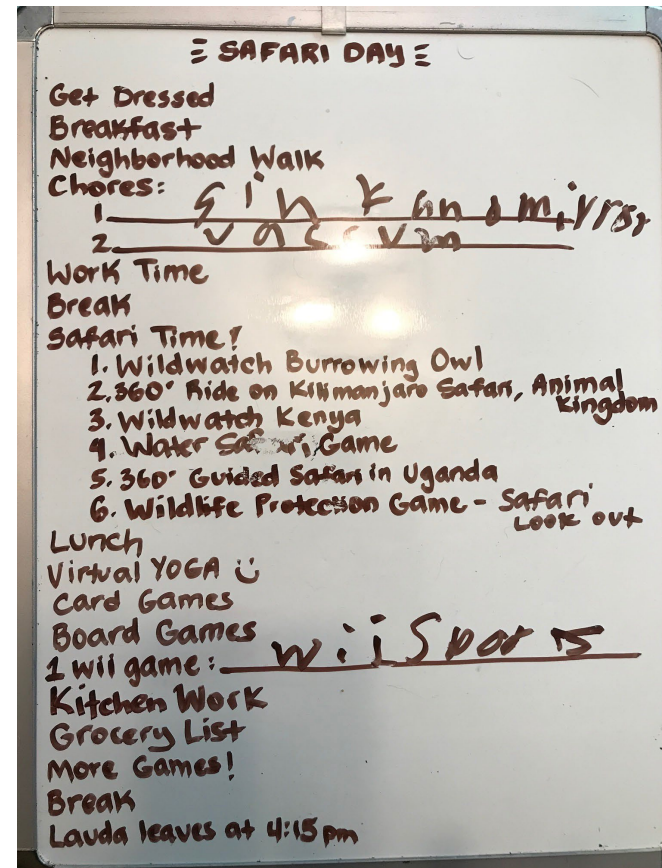 SAFARI DAY
Get Dressed
Breakfast
Neighborhood Walk
Chores:
1. Sink and mirrsr
2. vaccvm
Work Time
Break
Safari Time!
1. Wildwatch Burrowing Owl
2. 360° Ride on Kilimanjaro Safari, Animal
Kingdom
3. Wildwatch Kenya
4. Water Safari Game
5. 360° Guided Safari in Uganda
6. Wildlife Protection Game - Safari
Look out
Lunch
Virtual YOGA
Card Games
Board Games
1 wii game: wii Sports
Kitchen Work
Grocery List
More Games!
Break
Lauda leaves at 4:15 pm